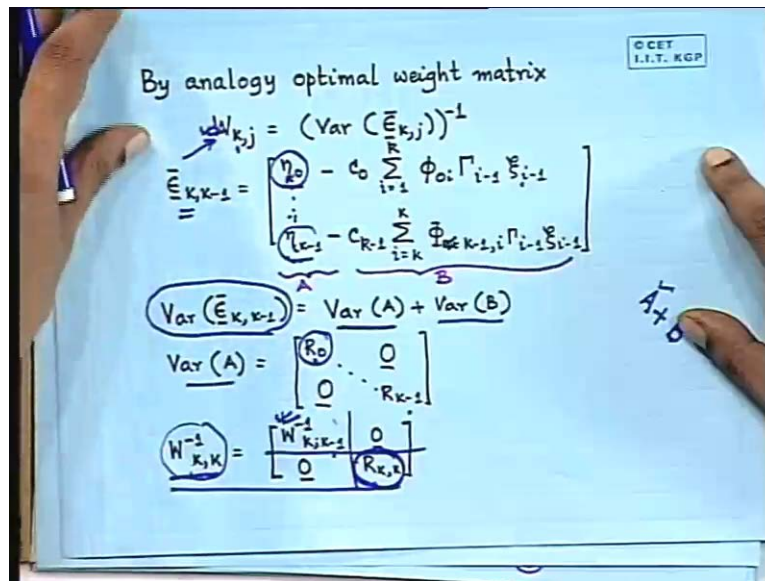 © CET
I.I.T. KGP
By analogy optimal weight matrix
W_{k,j} = (Var (ε̄_{k,j}))^{-1}
ε̄_{k,k-1} = [ η_0 - c_0 Σ_{i=1}^{k} Φ_{0i} Γ_{i-1} ξ_{i-1}
⋮
η_{k-1} - C_{k-1} Σ_{i=k}^{k} Φ_{k-1,i} Γ_{i-1} ξ_{i-1} ]
A B
Var(ε̄_{k,k-1}) = Var(A) + Var(B)
Var(A) = [ R_0 0
0 ⋱ R_{k-1} ]
W^{-1}_{k,k} = [ W^{-1}_{k,k-1} | 0
0 | R_{k,k} ]